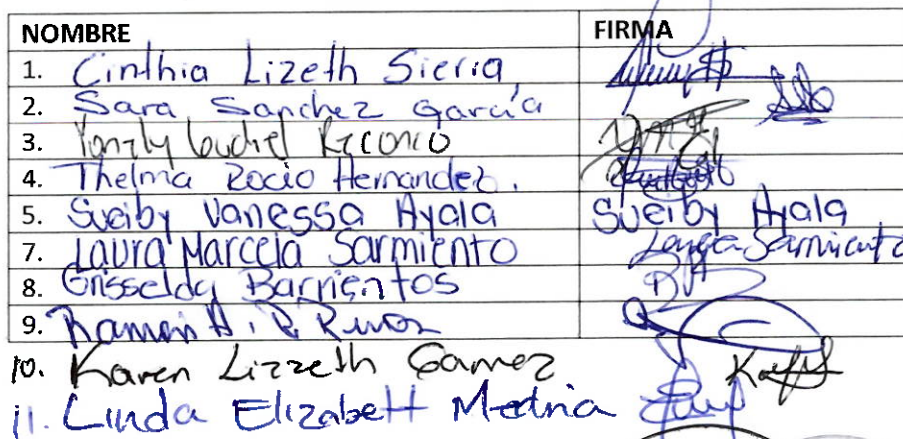 NOMBRE FIRMA
1. Cinthia Lizeth Sierra
2. Sara Sanchez García
3.
4. Thelma Rocio Hernandez.
5. Sueiby Vanessa Ayala Sueiby Ayala
7. Laura Marcela Sarmiento Laura Sarmiento
8. Grisselda Barrientos
9. Ramon A.
10. Karen Lizzeth Gamez
11. Linda Elizabett Medina